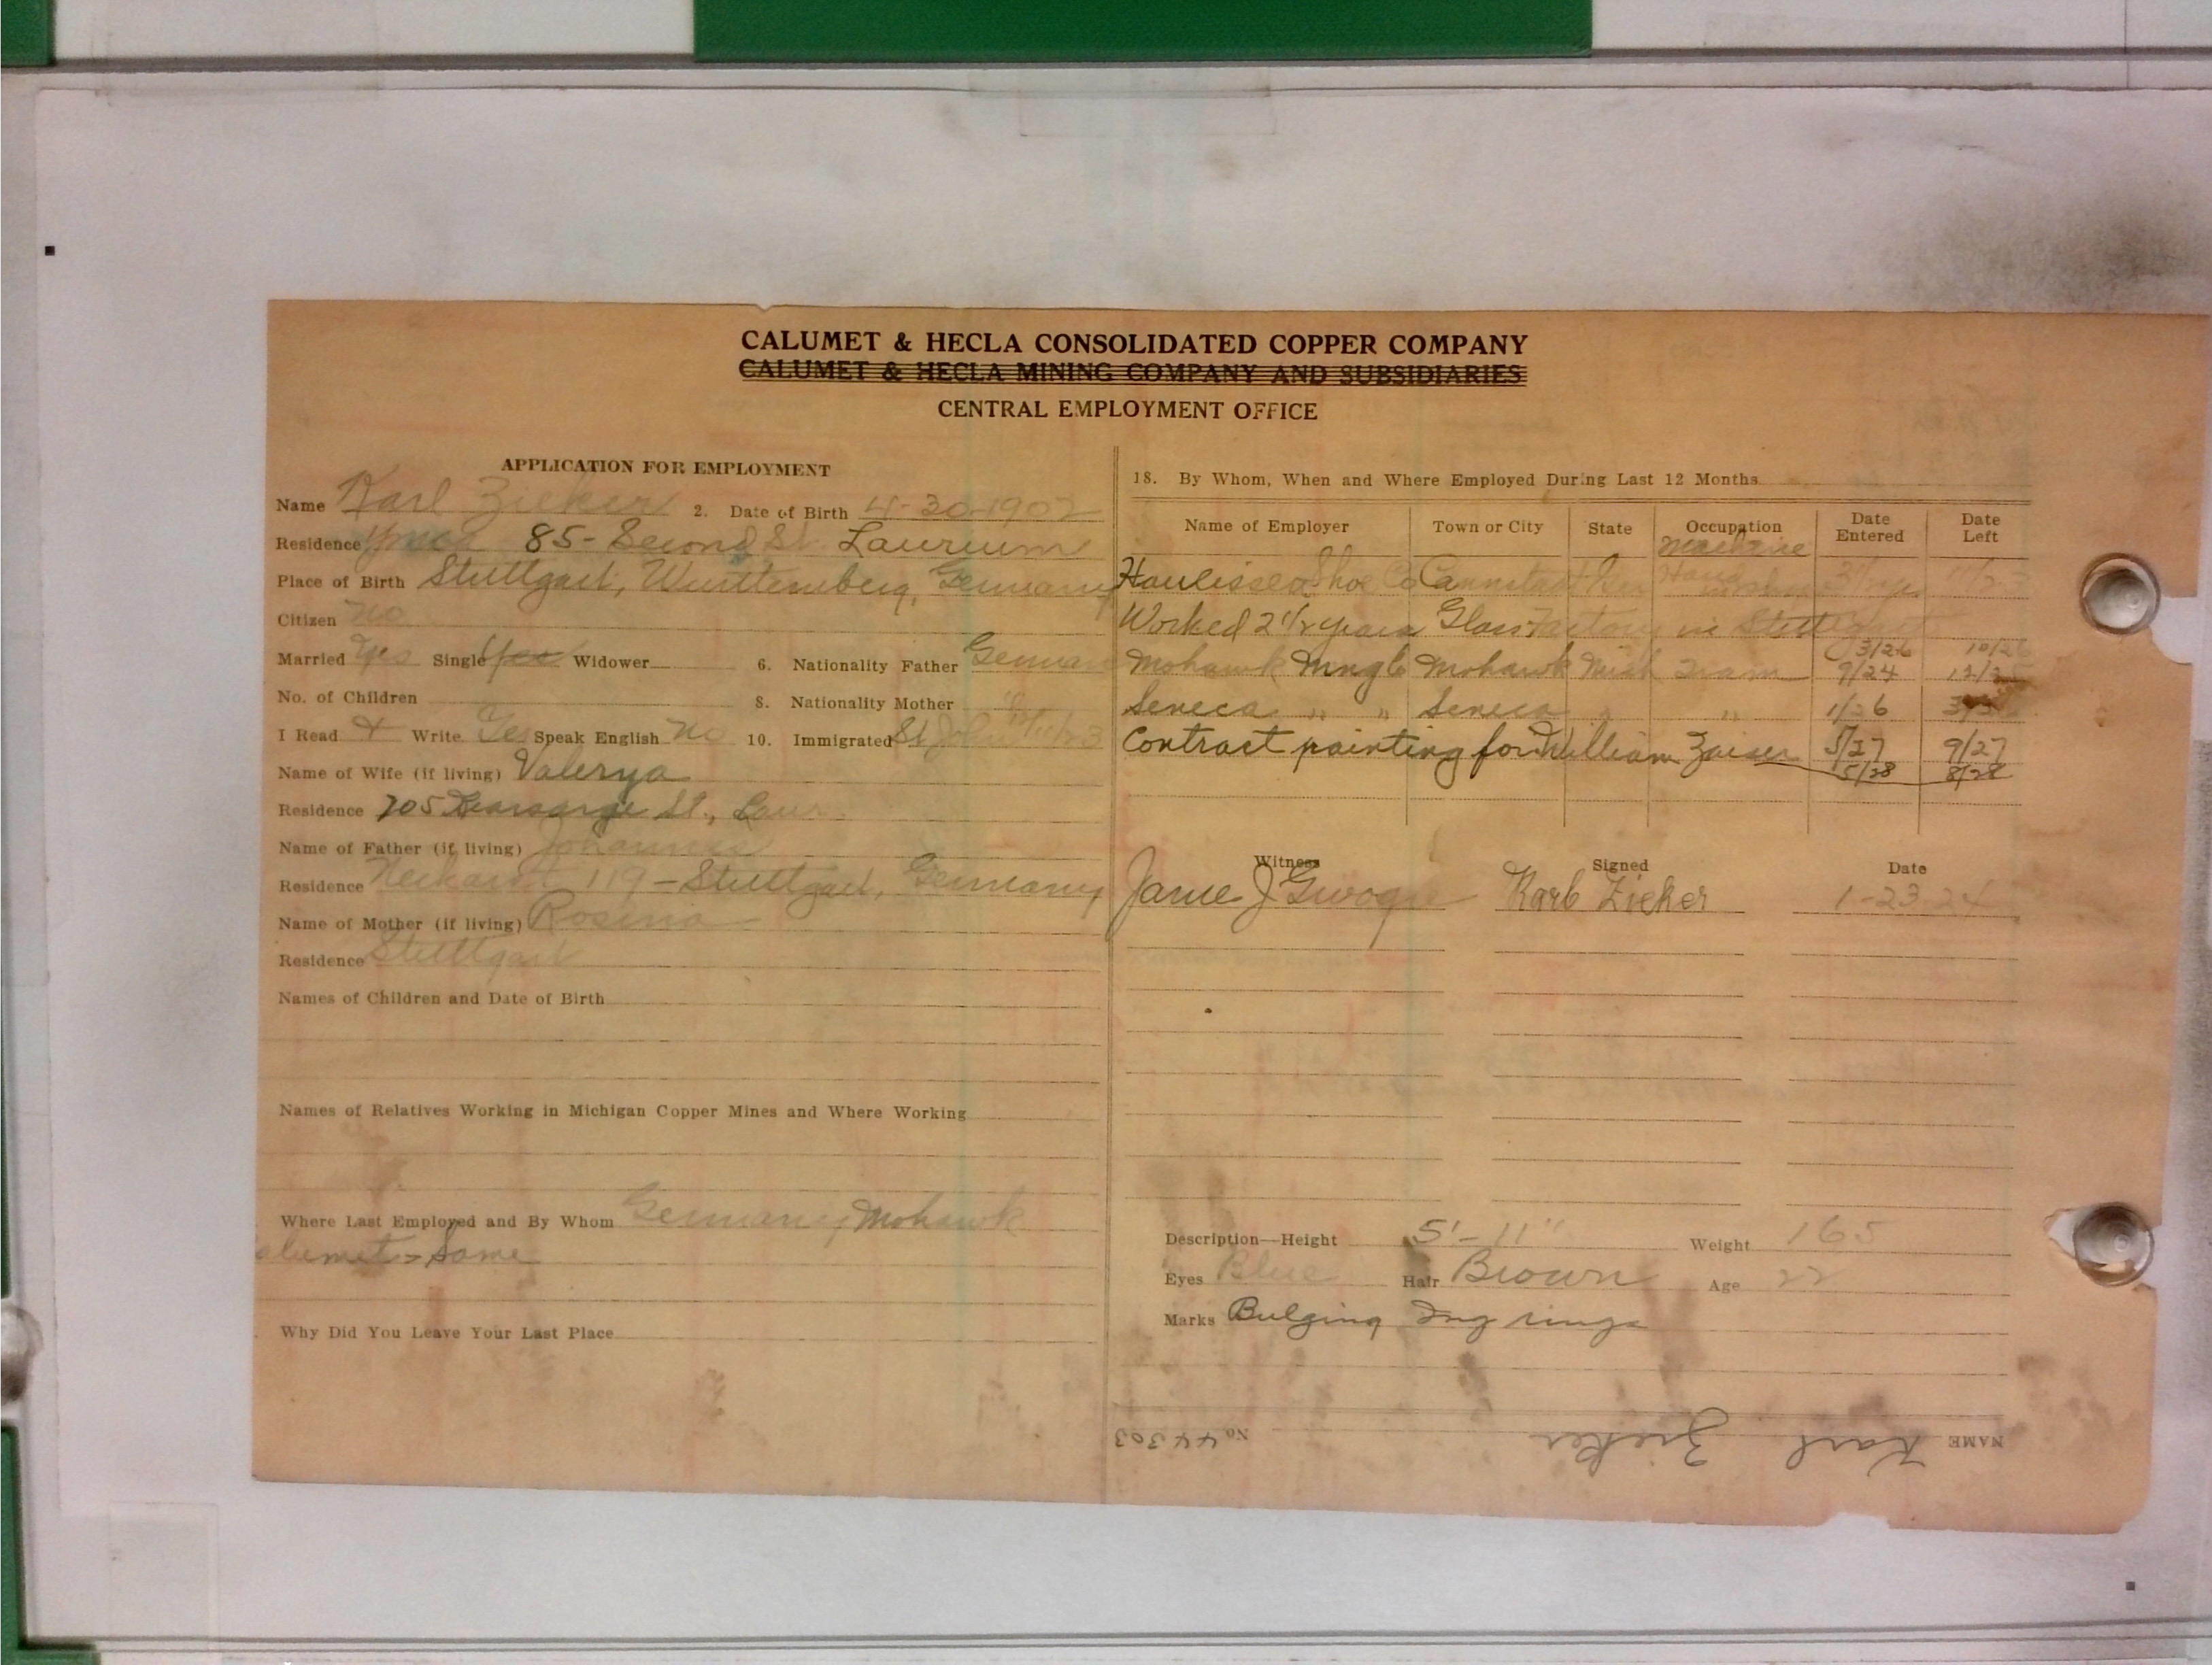 CALUMET & HECLA CONSOLIDATED COPPER COMPANY
CALUMET & HECLA MINING COMPANY AND SUBSIDIARIES
CENTRAL EMPLOYMENT OFFICE
APPLICATION FOR EMPLOYMENT
Name Karl Zieker 2. Date of Birth 4-30-1902
Residence 85- Second St. Laurium
Place of Birth Stuttgart, Wurttemberg, Germany
Citizen No
Married Yes Single Yes Widower 6. Nationality Father German
No. of Children 8. Nationality Mother
I Read + Write Yes Speak English No 10. Immigrated St John
Name of Wife (if living) Valerya
Residence 705 Kearsarge St., Laur.
Name of Father (if living) Johannes
Residence 119 - Stuttgart, Germany
Name of Mother (if living) Rosina
Residence Stuttgart
Names of Children and Date of Birth
Names of Relatives Working in Michigan Copper Mines and Where Working
Where Last Employed and By Whom Germany, Mohawk
alumet - Same
Why Did You Leave Your Last Place
18. By Whom, When and Where Employed During Last 12 Months
Name of Employer Town or City State Occupation Date Entered Date Left
Machine
Shoe Co Cannstatt
Worked 2 1/2 years Glass Factory in Stuttgart
3/26 10/26
Mohawk Mng Co Mohawk Mich Tram 9/24 12/25
Seneca " " Seneca " " 1/26
Contract painting for William Zaiser 5/27 9/27
5/28 8/28
Witness Signed Date
James J Karl Zieker 1-23-24
Description—Height 5'-11" Weight 165
Eyes Blue Hair Brown Age 22
Marks Bulging
NAME Karl Zieker No 44303